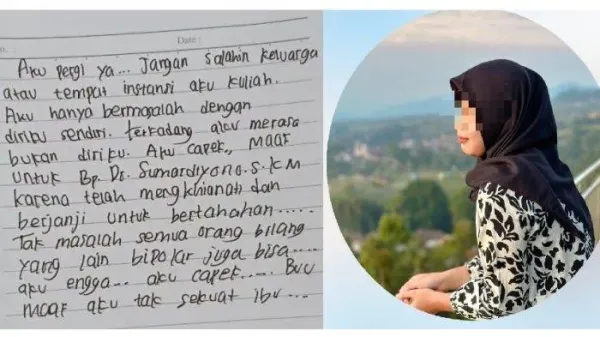 Date:
Aku pergi ya... Jangan Salahin keluarga
atau tempat instansi aku kuliah.
Aku hanya bermasalah dengan
diriku sendiri. Terkadang aku merasa
bukan diriku. Aku capek, maaf
untuk Bp. Dr. Sumardiyono.S.KM
karena telah mengkhianati dan
berjanji untuk bertahahan.....
Tak masalah semua orang bilang
yang lain bipolar juga bisa.....
aku engga... aku capek..... Buu
maaf aku tak sekuat ibu...